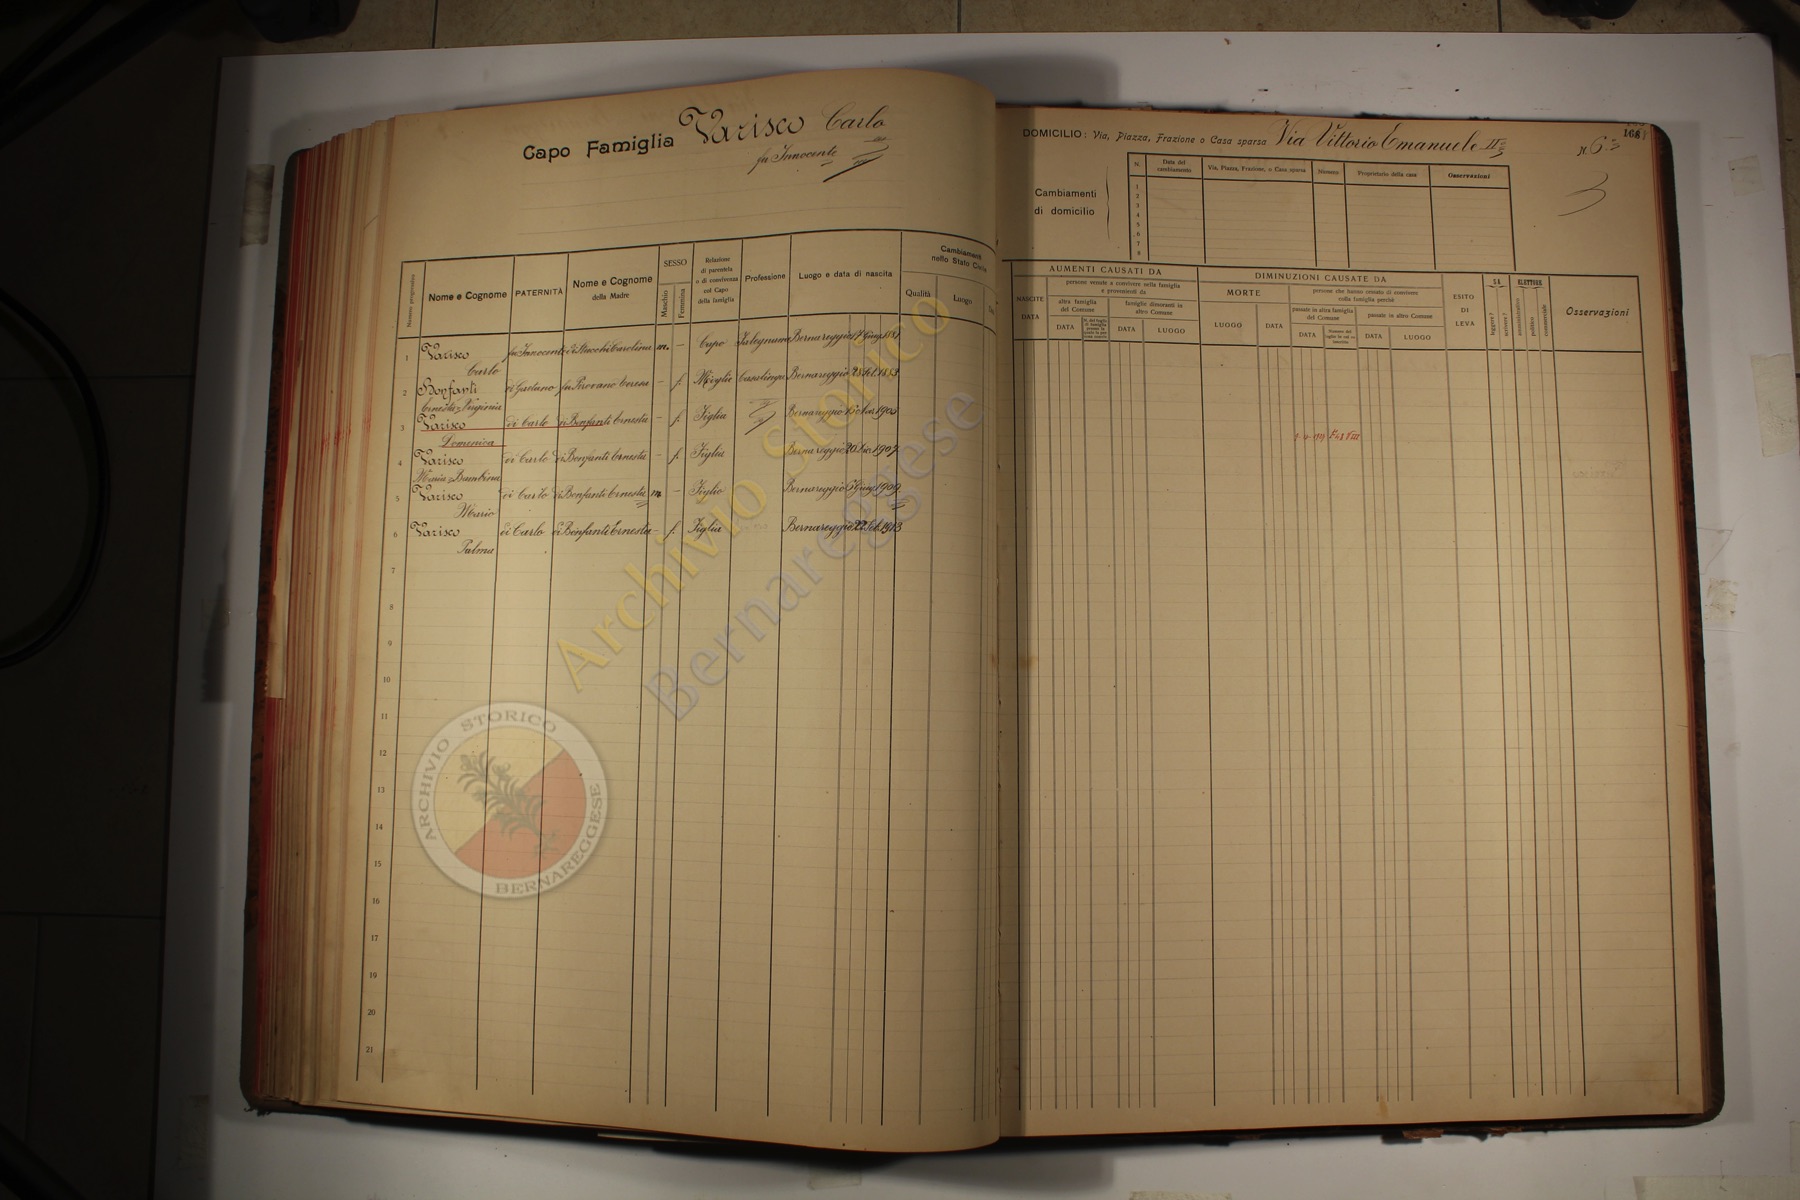 Capo Famiglia Varisco Carlo
fu Innocente
Numero progressivo
Nome e Cognome
PATERNITÀ
Nome e Cognome
della Madre
SESSO
Maschio
Femmina
Relazione
di parentela
o di convivenza
col Capo
della famiglia
Professione
Luogo e data di nascita
Cambiamenti
nello Stato Civile
Qualità
Luogo
1 Varisco fu Innocente di Stucchi Carolina m. — Capo Falegname Bernareggio
Carlo
2 Bonfanti di Gaetano fu Pirovano Teresa — f. Moglie Casalinga Bernareggio 1883
Ernesta Virginia
3 Varisco di Carlo di Bonfanti Ernesta — f. Figlia Bernareggio
Domenica
4 Varisco di Carlo di Bonfanti Ernesta — f. Figlia Bernareggio 1907
Maria Bambina
5 Varisco di Carlo di Bonfanti Ernesta m. — Figlio Bernareggio 1909
Mario
6 Varisco di Carlo di Bonfanti Ernesta — f. Figlia Bernareggio 22 Feb. 1913
Palma
7
8
9
10
11
12
13
14
15
16
17
18
19
20
21
DOMICILIO: Via, Piazza, Frazione o Casa sparsa Via Vittorio Emanuele II
N. 6
168
Cambiamenti
di domicilio
N.
Data del
cambiamento
Via, Piazza, Frazione, o Casa sparsa
Numero
Proprietario della casa
Osservazioni
1
2
3
4
5
6
7
8
NASCITE
DATA
AUMENTI CAUSATI DA
persone venute a convivere nella famiglia
e provenienti da
altra famiglia
del Comune
famiglie dimoranti in
altro Comune
DATA
DATA
LUOGO
DIMINUZIONI CAUSATE DA
MORTE
LUOGO
DATA
persone che hanno cessato di convivere
nella famiglia perchè
passate in altra famiglia
del Comune
passate in altro Comune
DATA
DATA
LUOGO
ESITO
DI
LEVA
SA
leggere?
scrivere?
ELETTORE
amministrativo
politico
commerciale
Osservazioni
Archivio Storico
Bernareggese
ARCHIVIO STORICO
BERNAREGGESE